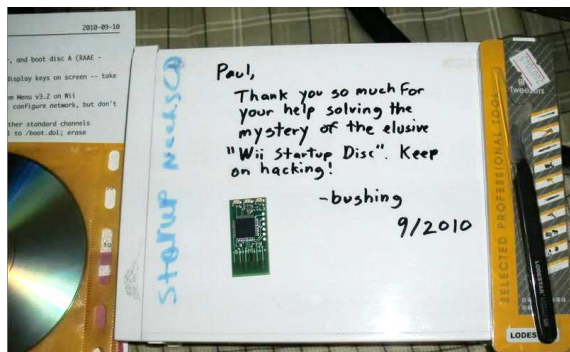 2010-09-10
, and boot disc A (RAAE -
display keys on screen -- take
em Menu v3.2 on Wii
configure network, but don't
ther standard channels
l to /boot.dol; erase
to
Startup
Paul,
Thank you so much for
your help solving the
mystery of the elusive
"Wii Startup Disc". Keep
on hacking!
-bushing
9/2010
Tweezers
SELECTED PROFESSIONAL TOOL
LODESTAR
LODES